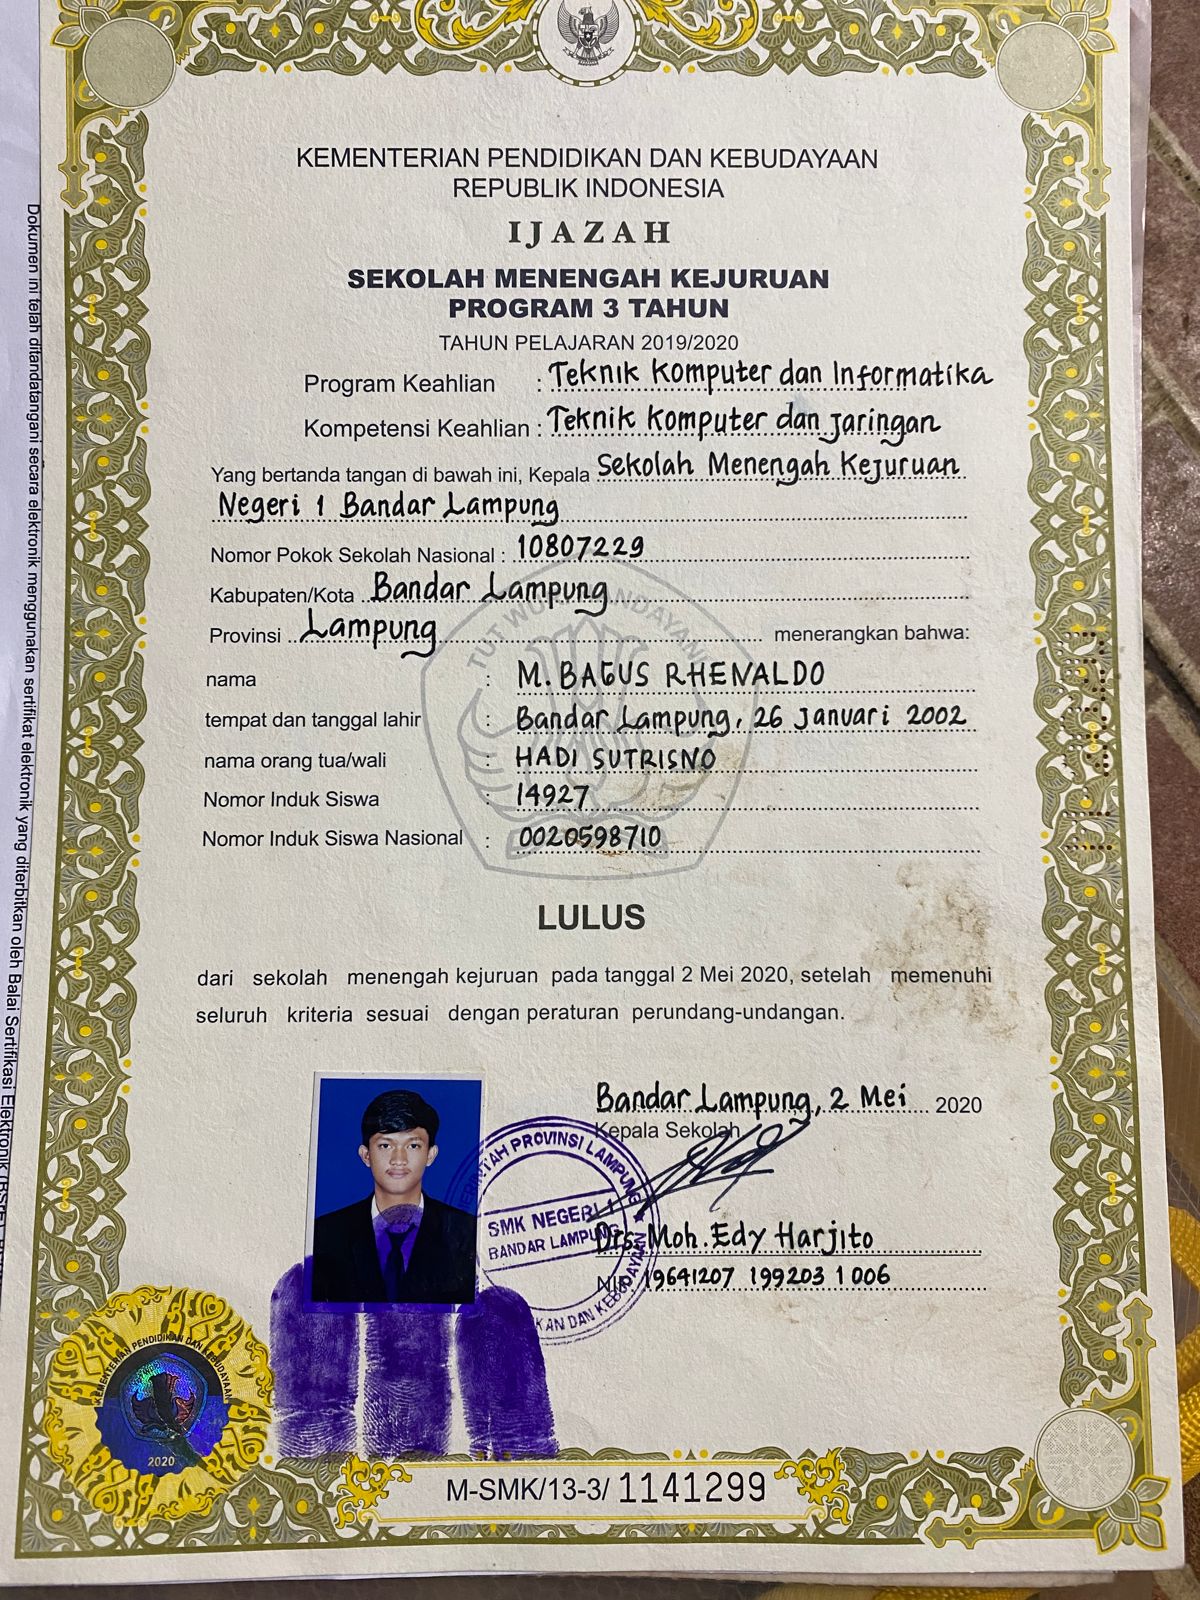 KEMENTERIAN PENDIDIKAN DAN KEBUDAYAAN
REPUBLIK INDONESIA
IJAZAH
SEKOLAH MENENGAH KEJURUAN
PROGRAM 3 TAHUN
TAHUN PELAJARAN 2019/2020
Program Keahlian : Teknik Komputer dan Informatika
Kompetensi Keahlian : Teknik Komputer dan Jaringan
Yang bertanda tangan di bawah ini, Kepala Sekolah Menengah Kejuruan
Negeri 1 Bandar Lampung
Nomor Pokok Sekolah Nasional : 10807229
Kabupaten/Kota Bandar Lampung
Provinsi Lampung menerangkan bahwa:
nama : M. BAGUS RHENALDO
tempat dan tanggal lahir : Bandar Lampung, 26 Januari 2002
nama orang tua/wali : HADI SUTRISNO
Nomor Induk Siswa : 14927
Nomor Induk Siswa Nasional : 0020598710
LULUS
dari sekolah menengah kejuruan pada tanggal 2 Mei 2020, setelah memenuhi
seluruh kriteria sesuai dengan peraturan perundang-undangan.
Bandar Lampung, 2 Mei 2020
Kepala Sekolah
Drs. Moh. Edy Harjito
NIP 19641207 199203 1 006
PROVINSI LAMPUNG
SMK NEGERI 1
BANDAR LAMPUNG
DAN KEBUDAYAAN
KEMENTERIAN PENDIDIKAN DAN KEBUDAYAAN
2020
M-SMK/13-3/ 1141299
TUT WURI HANDAYANI
Dokumen ini telah ditandatangani secara elektronik menggunakan sertifikat elektronik yang diterbitkan oleh Balai Sertifikasi Elektronik (BSrE)